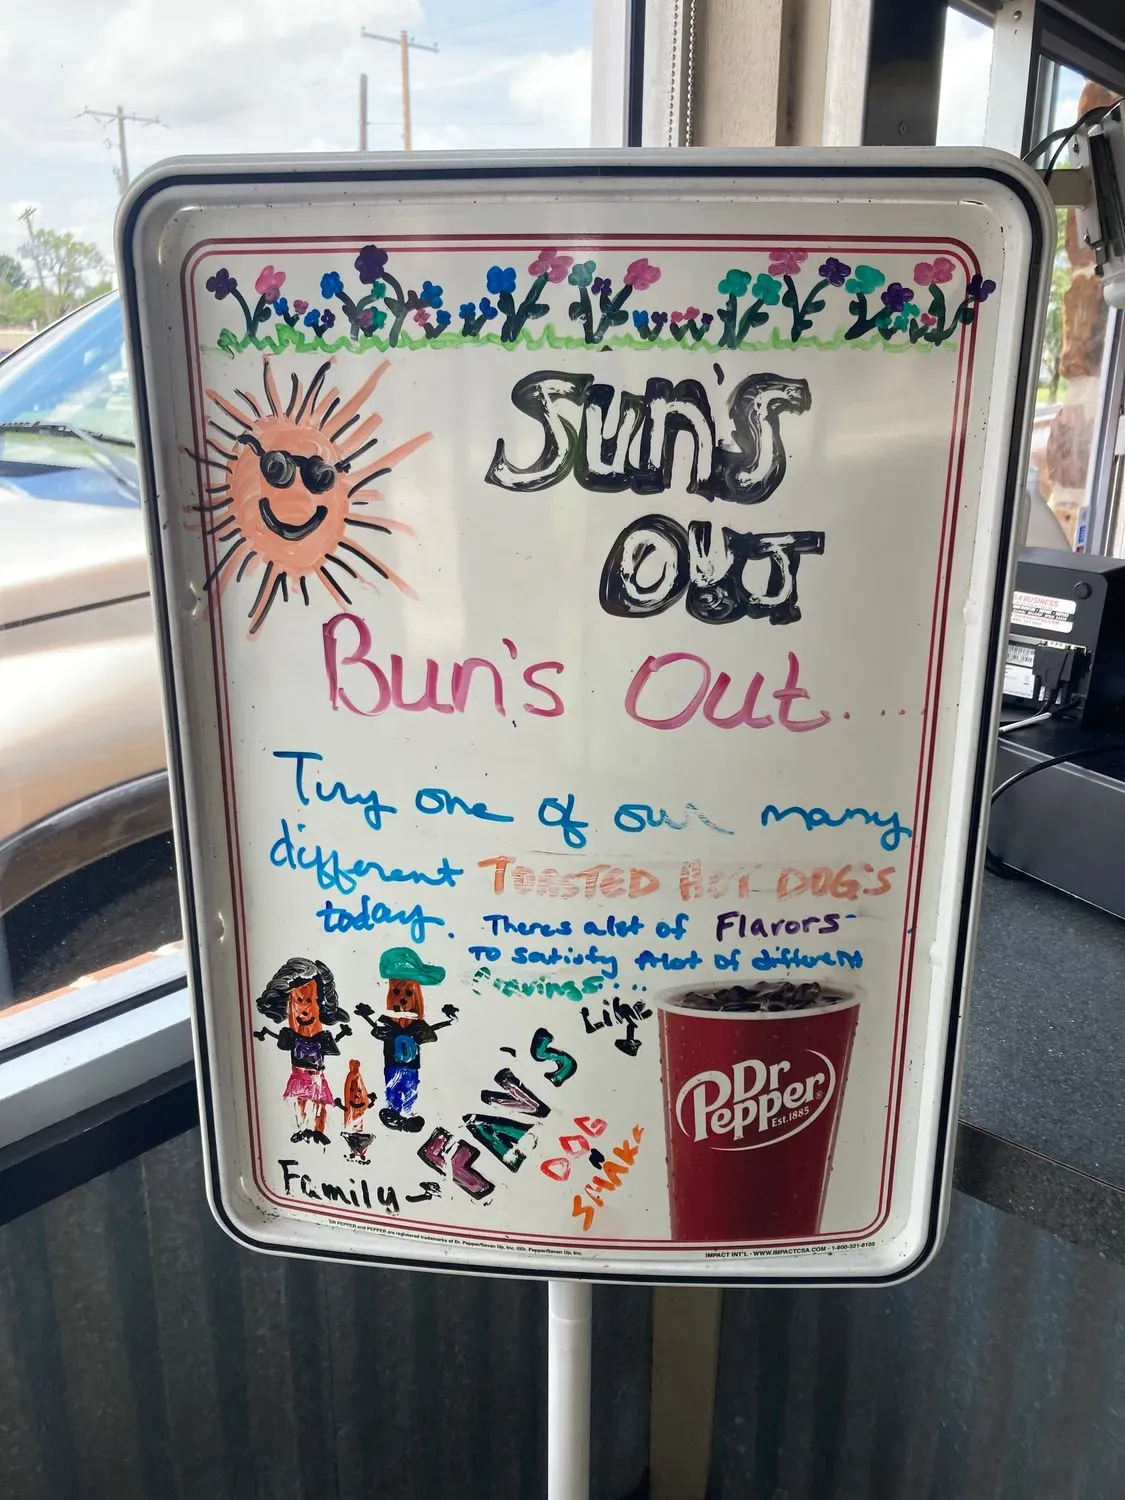 Sun's
OUT
Bun's Out....
Try one of our many
different TOASTED HOT DOG'S
today. Theres alot of Flavors-
TO Satisfy Alot of different
Cravings....
Like
FAV'S
DOG
N
SHAKE
Family
D
Dr
Pepper®
Est.1885
DR PEPPER and PEPPER are registered trademarks of Dr. Pepper/Seven Up, Inc. ©Dr. Pepper/Seven Up, Inc.
IMPACT INT'L · WWW.IMPACTCSA.COM · 1-800-321-8105
BUSINESS